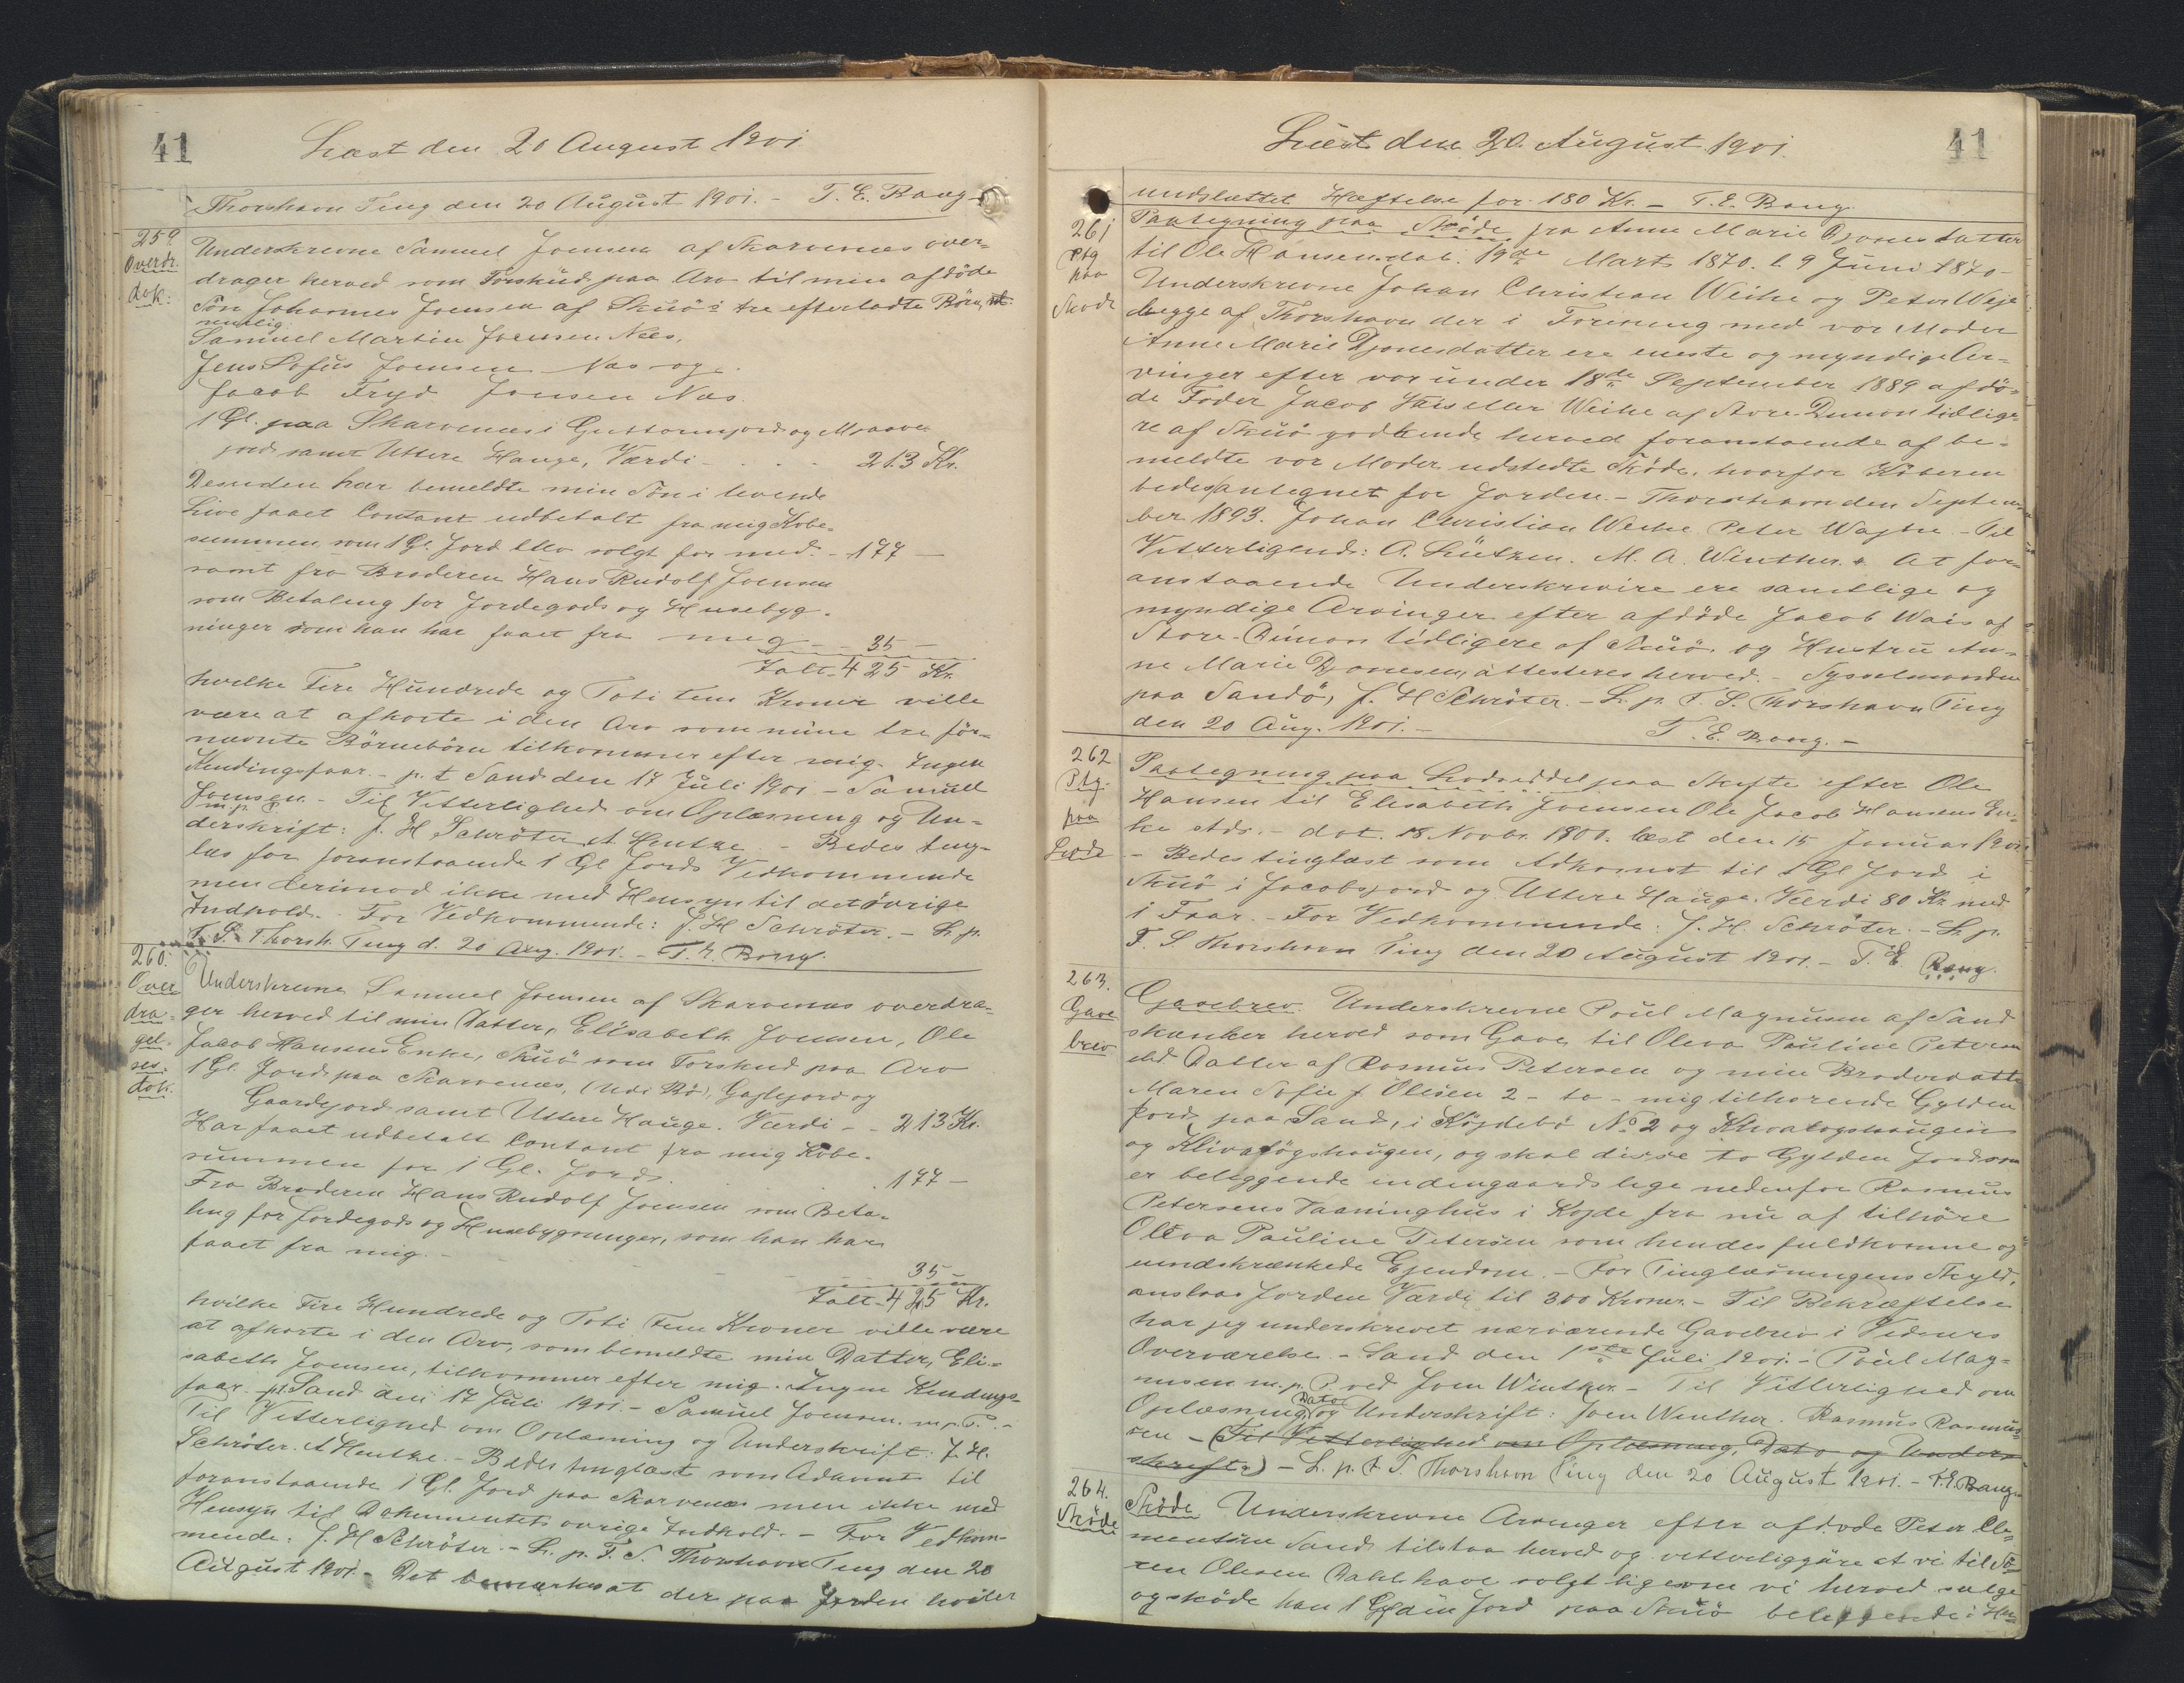 41
Læst den 20 August 1901
Thorshavn Ting den 20 August 1901. - T. E. Bang
259.
Overdr.
dok:
Underskrevne Samuel Joensen af Skarvenæs over-
drager herved som Forskud paa Arv til min afdöde
Sön Johannes Joensen af Skuö's tre efterladte Börn,
nemlig:
Samuel Martin Joensen Næs,
Jens Sofus Joensen Næs og
Jacob Fryd Joensen Næs.
1 Gl. paa Skarvenæs i Guttormsjord og
jord samt Uttere Hauge, Værdi - . . . 213 Kr.
Desuden har bemeldte min Sön i levende
Live faaet Contant udbetalt fra mig Købe-
summen som 1 Gl. Jord blev solgt for med - 177 -
samt fra Broderen Hans Rudolf Joensen
som Betaling for Jordegods og Husebyg-
ninger som han har faaet fra mig - - 35 -
Ialt 425 Kr.
hvilke Fire Hundrede og Toti fem Kroner ville
være at afkorte i den Arv som mine tre för-
nævnte Börnebörn tilkommer efter mig. Ingen
Kendingsfaar. - p. t. Sand den 17 Juli 1901 - Samuel
Joensen. - Til Vitterlighed om Oplæsning og Un-
m. p. P.
derskrift: J. H Schröter A Hentze. - Bedes ting-
læs for foranstaaende 1 Gl Jords Vedkommende
men derimod ikke med Hensyn til det övrige
Indhold. - For Vedkommende: J. H Schröter. - L. p.
F. S. Thorsh. Ting d. 20 Aug. 1901. - T. E. Bang.
260.
Over
dra-
gel-
ses-
dok.
Underskrevne Samuel Joensen af Skarvenæs overdra-
ger herved til min Datter, Elisabeth Joensen, Ole
Jacob Hansens Enke, Skuö som Forskud paa Arv
1 Gl. Jord paa Skarvenæs, (Udi Bö), og
Gaardejord samt Uttere Hauge. Værdi - - 213 Kr.
Har faaet udbetalt Contant fra mig Købe-
summen for 1 Gl. Jord. . . . 177 -
Fra Broderen Hans Rudolf Joensen som Beta-
ling for Jordegods og Husebygninger, som han har
faaet fra mig. - - - - 35 -
Ialt 425 Kr.
hvilke Fire Hundrede og Toti Fem Kroner ville være
at afkorte i den Arv, som bemeldte min Datter, Eli-
sabeth Joensen, tilkommer efter mig. Ingen Kendings-
faar. p.t. Sand den 17 Juli 1901 - Samuel Joensen. m. p. P. -
Til Vitterlighed om Oplæsning og Underskrift: J. H.
Schröter. A Hentze. - Bedes tinglæst som Adkomst til
foranstaaende 1 Gl. Jord paa Skarvenæs men ikke med
Hensyn til Dokumentets övrige Indhold. - For Vedkom-
mende. J. H Schröter. - L. p. F. S. Thorshavn Ting den 20
August 1901 - Det bemærkes at der paa Jorden hviler
41
Læst den 20. August 1901.
uudslettet Hæftelse for 180 Kr. - T. E. Bang.
261
Ptg
paa
Skøde
Paategning paa Sköde fra Anne Marie Djonesdatter
til Ole Hansen dat. 19de Marts 1870. l. 9 Juni 1870 -
Underskrevne Johan Christian Weihe og Peter Weje
begge af Thorshavn der i Forening med vor Moder
Anne Marie Djonesdatter ere eneste og myndige Ar-
vinger efter vor under 18de September 1889 afdö-
de Fader Jacob Wais eller Weihe af Store-Dimon tidlige-
re af Skuö godkende herved foranstaaende af be-
meldte vor Moder udstedte Sköde, hvorfor Köberen
bedes antegnet for Jorden. - Thorshavn den Septem-
ber 1893. Johan Christian Weihe Peter - Til
Vitterlighed: A. Lützen. M. A. Winther. At for-
anstaaende Underskrivere ere samtlige og
myndige Arvinger efter afdöde Jacob Wais af
Store-Dimon tidligere af Skuö og Hustru An-
ne Marie Djonesen, attesteres herved. - Sysselmanden
paa Sandö, J. H Schröter. - L. p. F. S. Thorshavn Ting
den 20 Aug. 1901. - T. E. Bang. -
262
Ptg.
paa
Lodz
Paategning paa Lodseddel paa Skifte efter Ole
Hansen til Elisabeth Joensen Ole Jacob Hansens En-
ke stds. - dat. 18 Novbr. 1900. læst den 15 Januar 1901.
- Bedes tinglæst som Adkomst til 1 Gl Jord i
Skuö i Jacobsjord og Uttere Hauge. Værdi 80 Kr. med
1 Faar. - For Vedkommende: J. H. Schröter. - L. p.
F. S. Thorshavn Ting den 20 August 1901. - T. E. Bang.
263.
Gave
brev
Gavebrev. Underskrevne Poul Magnusen af Sand
skænker herved som Gave til Oleva Pauline Petersen
Datter af Rasmus Petersen og min Broderdatter
Maren Sofie f. Olesen 2 - to - mig tilhørende Gylden
Jord paa Sand, i No 2 og
og og skal disse to Gylden Jord som
er beliggende indengaards lige nedenfor Rasmus
Petersens Vaaninghus i fra nu af tilhöre
Oleva Pauline Petersen som hendes fuldkomne og
uindskrænkede Ejendom. - For Tinglæsningens Skyld,
anslaas Jorden Værdi til 300 Kroner. - Til Bekræftelse
har jeg underskrevet nærværende Gavebrev i Vidners
Overværelse. - Sand den 1ste Juli 1901. - Poul Mag-
nusen m. p. P. ved Joen Winther. - Til Vitterlighed om
Oplæsning, Dato og Underskrift: Joen Winther. Rasmus Rasmus-
sen - (Til Vitterlighed om Oplæsning, Dato og Under-
skrift.) - L. p. F. S. Thorshavn Ting den 20 August 1901. - T. E. Bang.
264.
Sköde
Sköde Underskrevne Arvinger efter afdøde Peter Cle-
mentsen Sand tilstaa herved og vitterliggöre at vi til Sö-
ren Olesen Dahl have solgt ligesom vi herved sælge
og sköde ham 1 Gylden Jord paa Skuö beliggende i